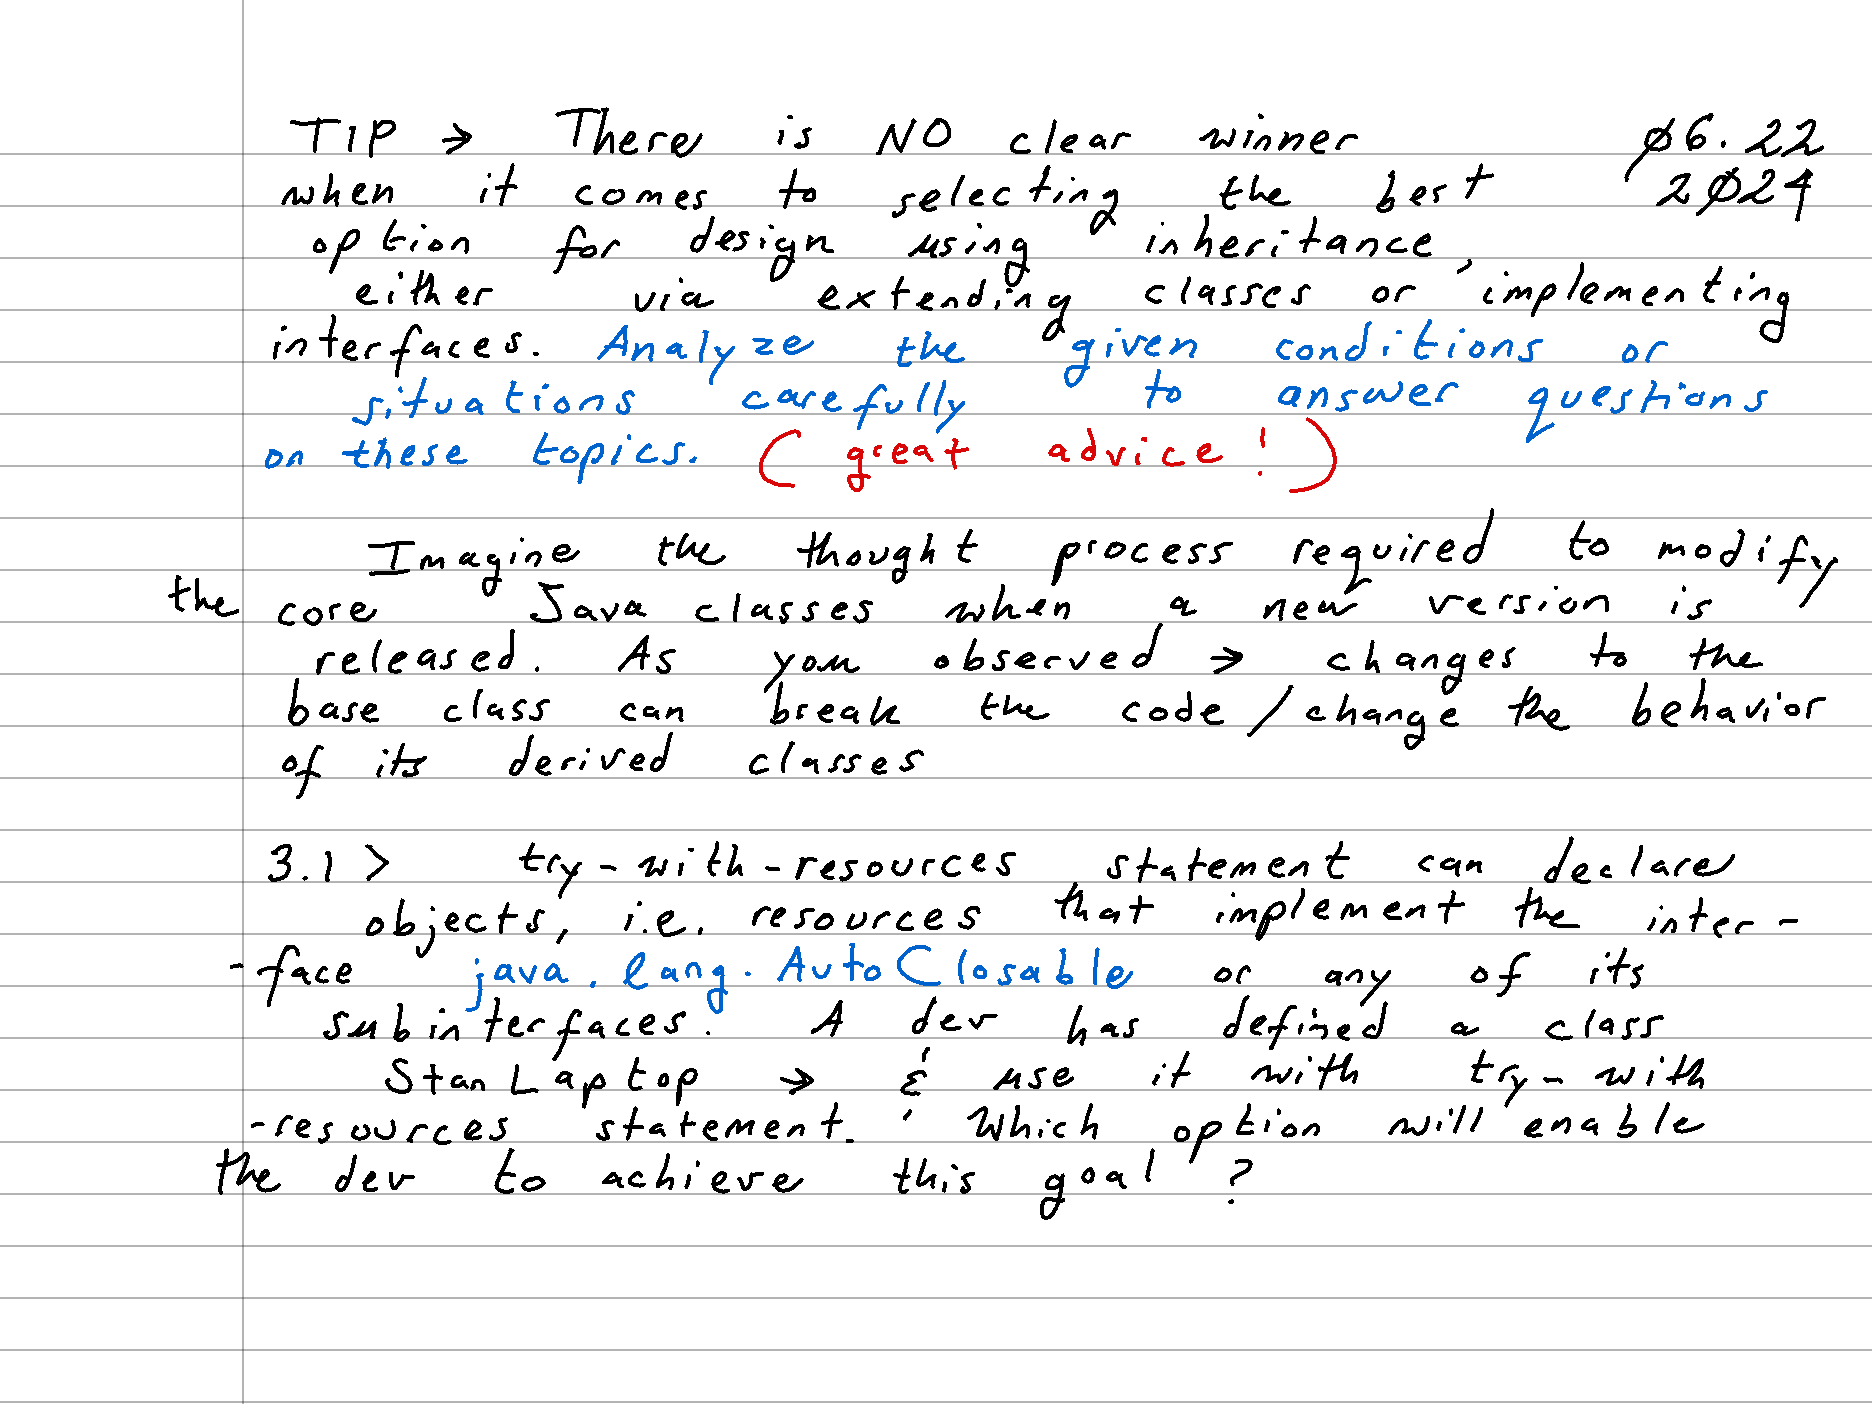 TIP → There is NO clear winner ø6.22
when it comes to selecting the best 2ø24
option for design using inheritance,
either via extending classes or implementing
interfaces. Analyze the given conditions or
situations carefully to answer questions
on these topics. (great advice!)
Imagine the thought process required to modify
the core Java classes when a new version is
released. As you observed → changes to the
base class can break the code / change the behavior
of its derived classes
3.1 > try-with-resources statement can declare
objects, i.e. resources that implement the inter-
-face java.lang.AutoClosable or any of its
subinterfaces. A dev has defined a class
StanLaptop → & use it with try-with
-resources statement. Which option will enable
the dev to achieve this goal?